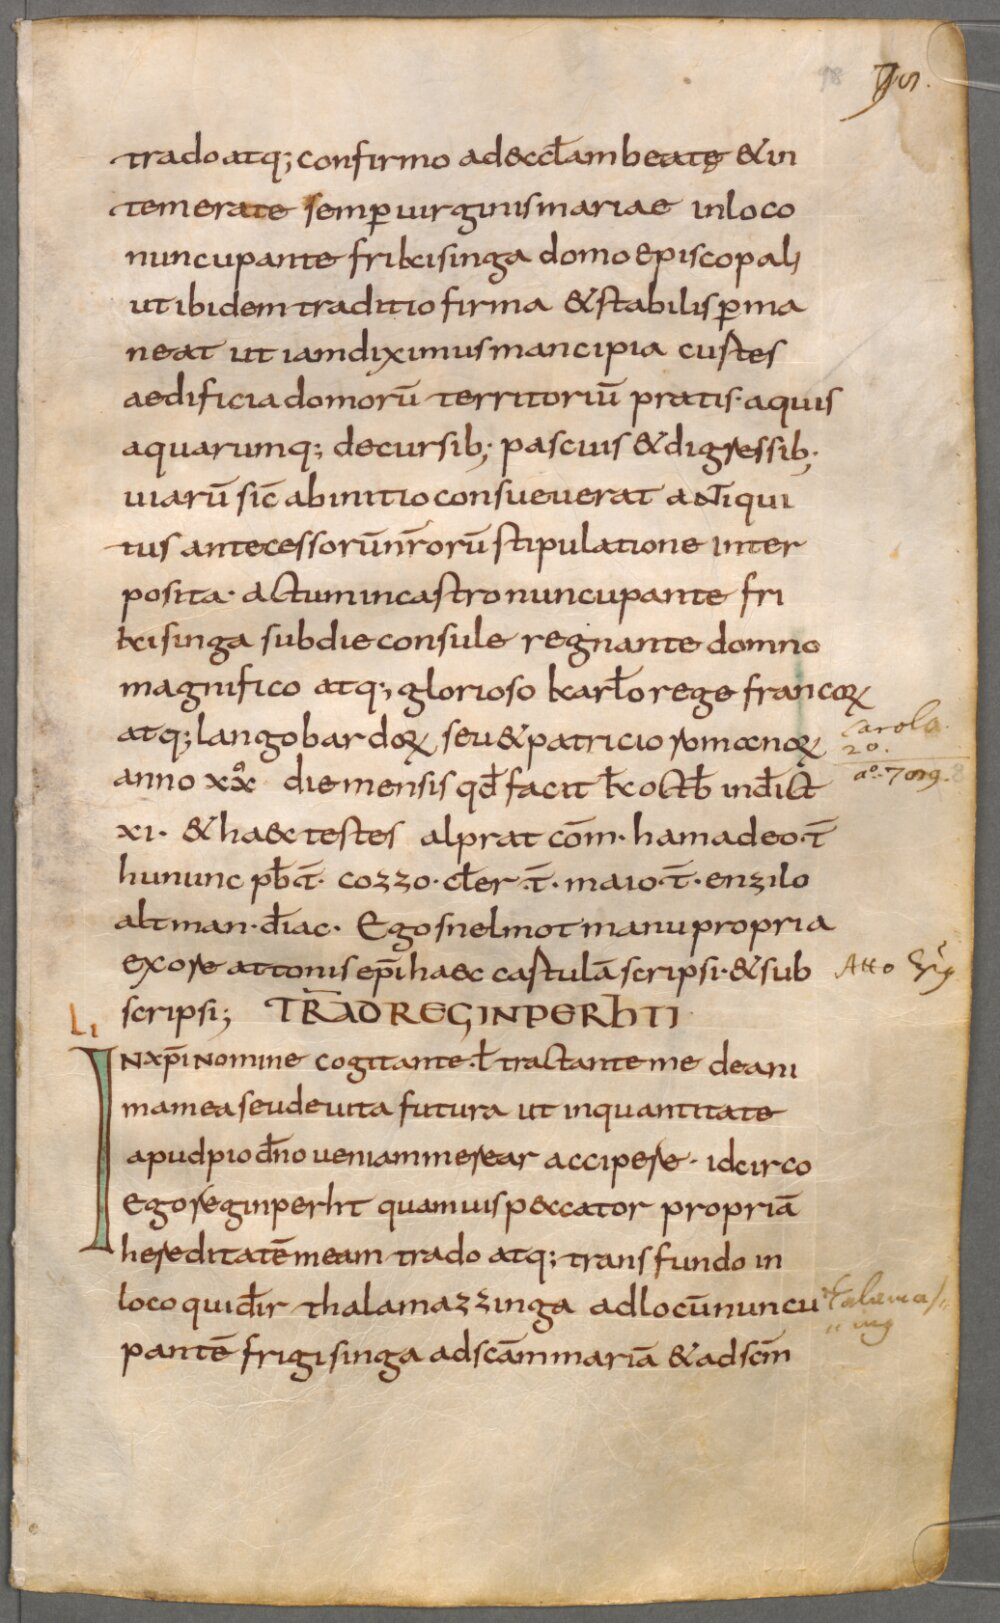 trado atq; confirmo ad &ccl̄am beatę & in
temerate semp̱ uirginis mariae in loco
nuncupante frikisinga domo episcopali
ut ibidem traditio firma & stabilis p̱ma
neat ut iam diximus mancipia custes
aedificia domorū territoriū pratis· aquis
aquarumq; decursib;· pascuis & digressib;·
uiarū sic̄ ab initio consueuerat antiqui
tus antecessorū nr̄orū stipulatione inter
posita· actum in castro nuncupante fri
kisinga sub die consule regnante domno
magnifico atq; glorioso karl̄o rege francoꝝ
atq; langobardoꝝ seu & patricio romanoꝝ
anno xxͦ die mensis qđ facit k̄ octb̄ ind̄ict
xi· & haec testes alprat com̄· hamadeo· t̄
hununc pb̄· t̄· cozzo· cl̄er· t̄· maio· t̄· enzilo
altman· d̄iac· Ego snelmot manu propria
ex ore attonis ep̄i haec castulā scripsi· & sub
scripsi; TRAD̄ REGINPERHTI
IN xp̄i nomine cogitante· ł tractante me de ani
ma mea seu de uita futura ut in quantitate
apud pio dn̄o ueniam merear accipere· idcirco
Ego reginperht quamuis peccator propriā
hereditatē meam trado atq; transfundo in
loco qui dr̄ thalamazzinga ad locū nuncu
pantē frigisinga ad scām mariā & ad scm̄
Carolo
20.
Atto
Li